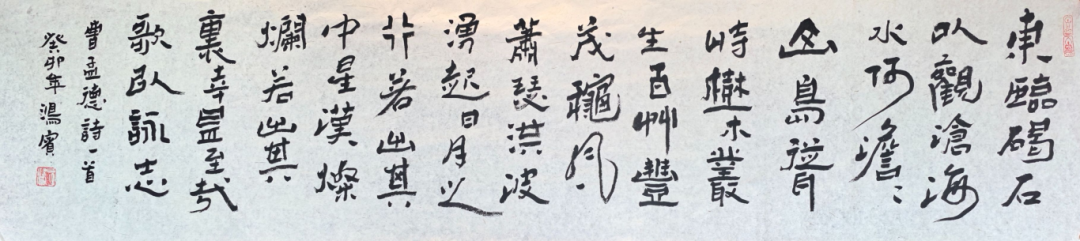 東臨碣石
以觀滄海
水何澹〻
山島聳
峙樹木叢
生百艸豐
茂龝風
蕭瑟洪波
湧起日月之
行若出其
中星漢燦
爛若出其
裏幸甚至哉
歌以詠志
曹孟德詩一首
癸卯年鴻賓